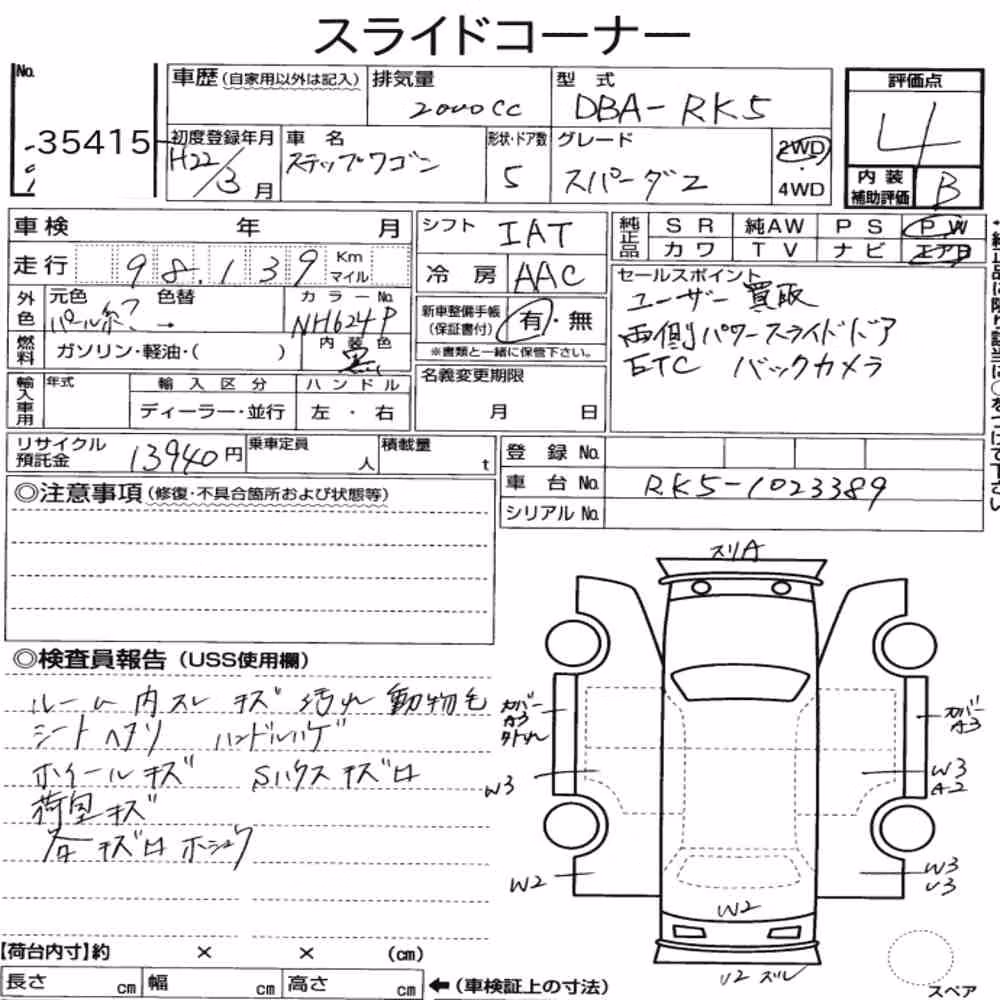 スライドコーナー
No.
35415
車歴 (自家用以外は記入)
排気量
2000cc
型式
DBA-RK5
評価点
4
内装
補助評価
B
初度登録年月
H22/3月
車名
ステップワゴン
形状・ドア数
5
グレード
スパーダZ
2WD
・
4WD
車検 年 月
シフト
IAT
純正品
SR 純AW PS PW
カワ TV ナビ エアB
走行 98,139 Km
マイル
冷房 AAC
セールスポイント
ユーザー買取
両側パワースライドドア
ETC バックカメラ
外色
元色 色替 カラーNo.
パール → NH624P
新車整備手帳
(保証書付)
有・無
※書類と一緒に保管下さい。
燃料
ガソリン・軽油・( )
内装色
黒
名義変更期限
月 日
輸入車用
年式
輸入区分
ディーラー・並行
ハンドル
左・右
リサイクル
預託金
13940円
乗車定員
人
積載量
t
登録No.
車台No. RK5-1023389
シリアルNo.
◎注意事項(修復・不具合箇所および状態等)
◎検査員報告 (USS使用欄)
ルーム内スレ キズ 汚れ 動物毛
シートヘタリ ハンドルハゲ
ホイールキズ Sハウスキズロ
荷室キズ
各キズロホシュウ
スリA
カバー
A3
カバー
A3
W3
W3
A2
W2
W3
U3
W2
U2 ズレ
スペア
【荷台内寸】約 × × (cm)
長さ cm 幅 cm 高さ cm ←(車検証上の寸法)